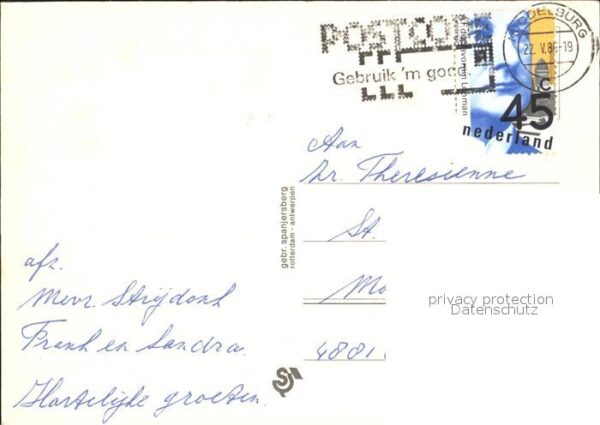 POSTCODE
Gebruik 'm goed.
MIDDELBURG
22.V.86-19
45c
nederland
Aan
Zr. Theresienne
St.
Mo
4881
privacy protection
Datenschutz
gebr. spanjersberg
rotterdam - antwerpen
afz.
Mevr. Strijdonk
Frank en Sandra.
Hartelijke groeten.